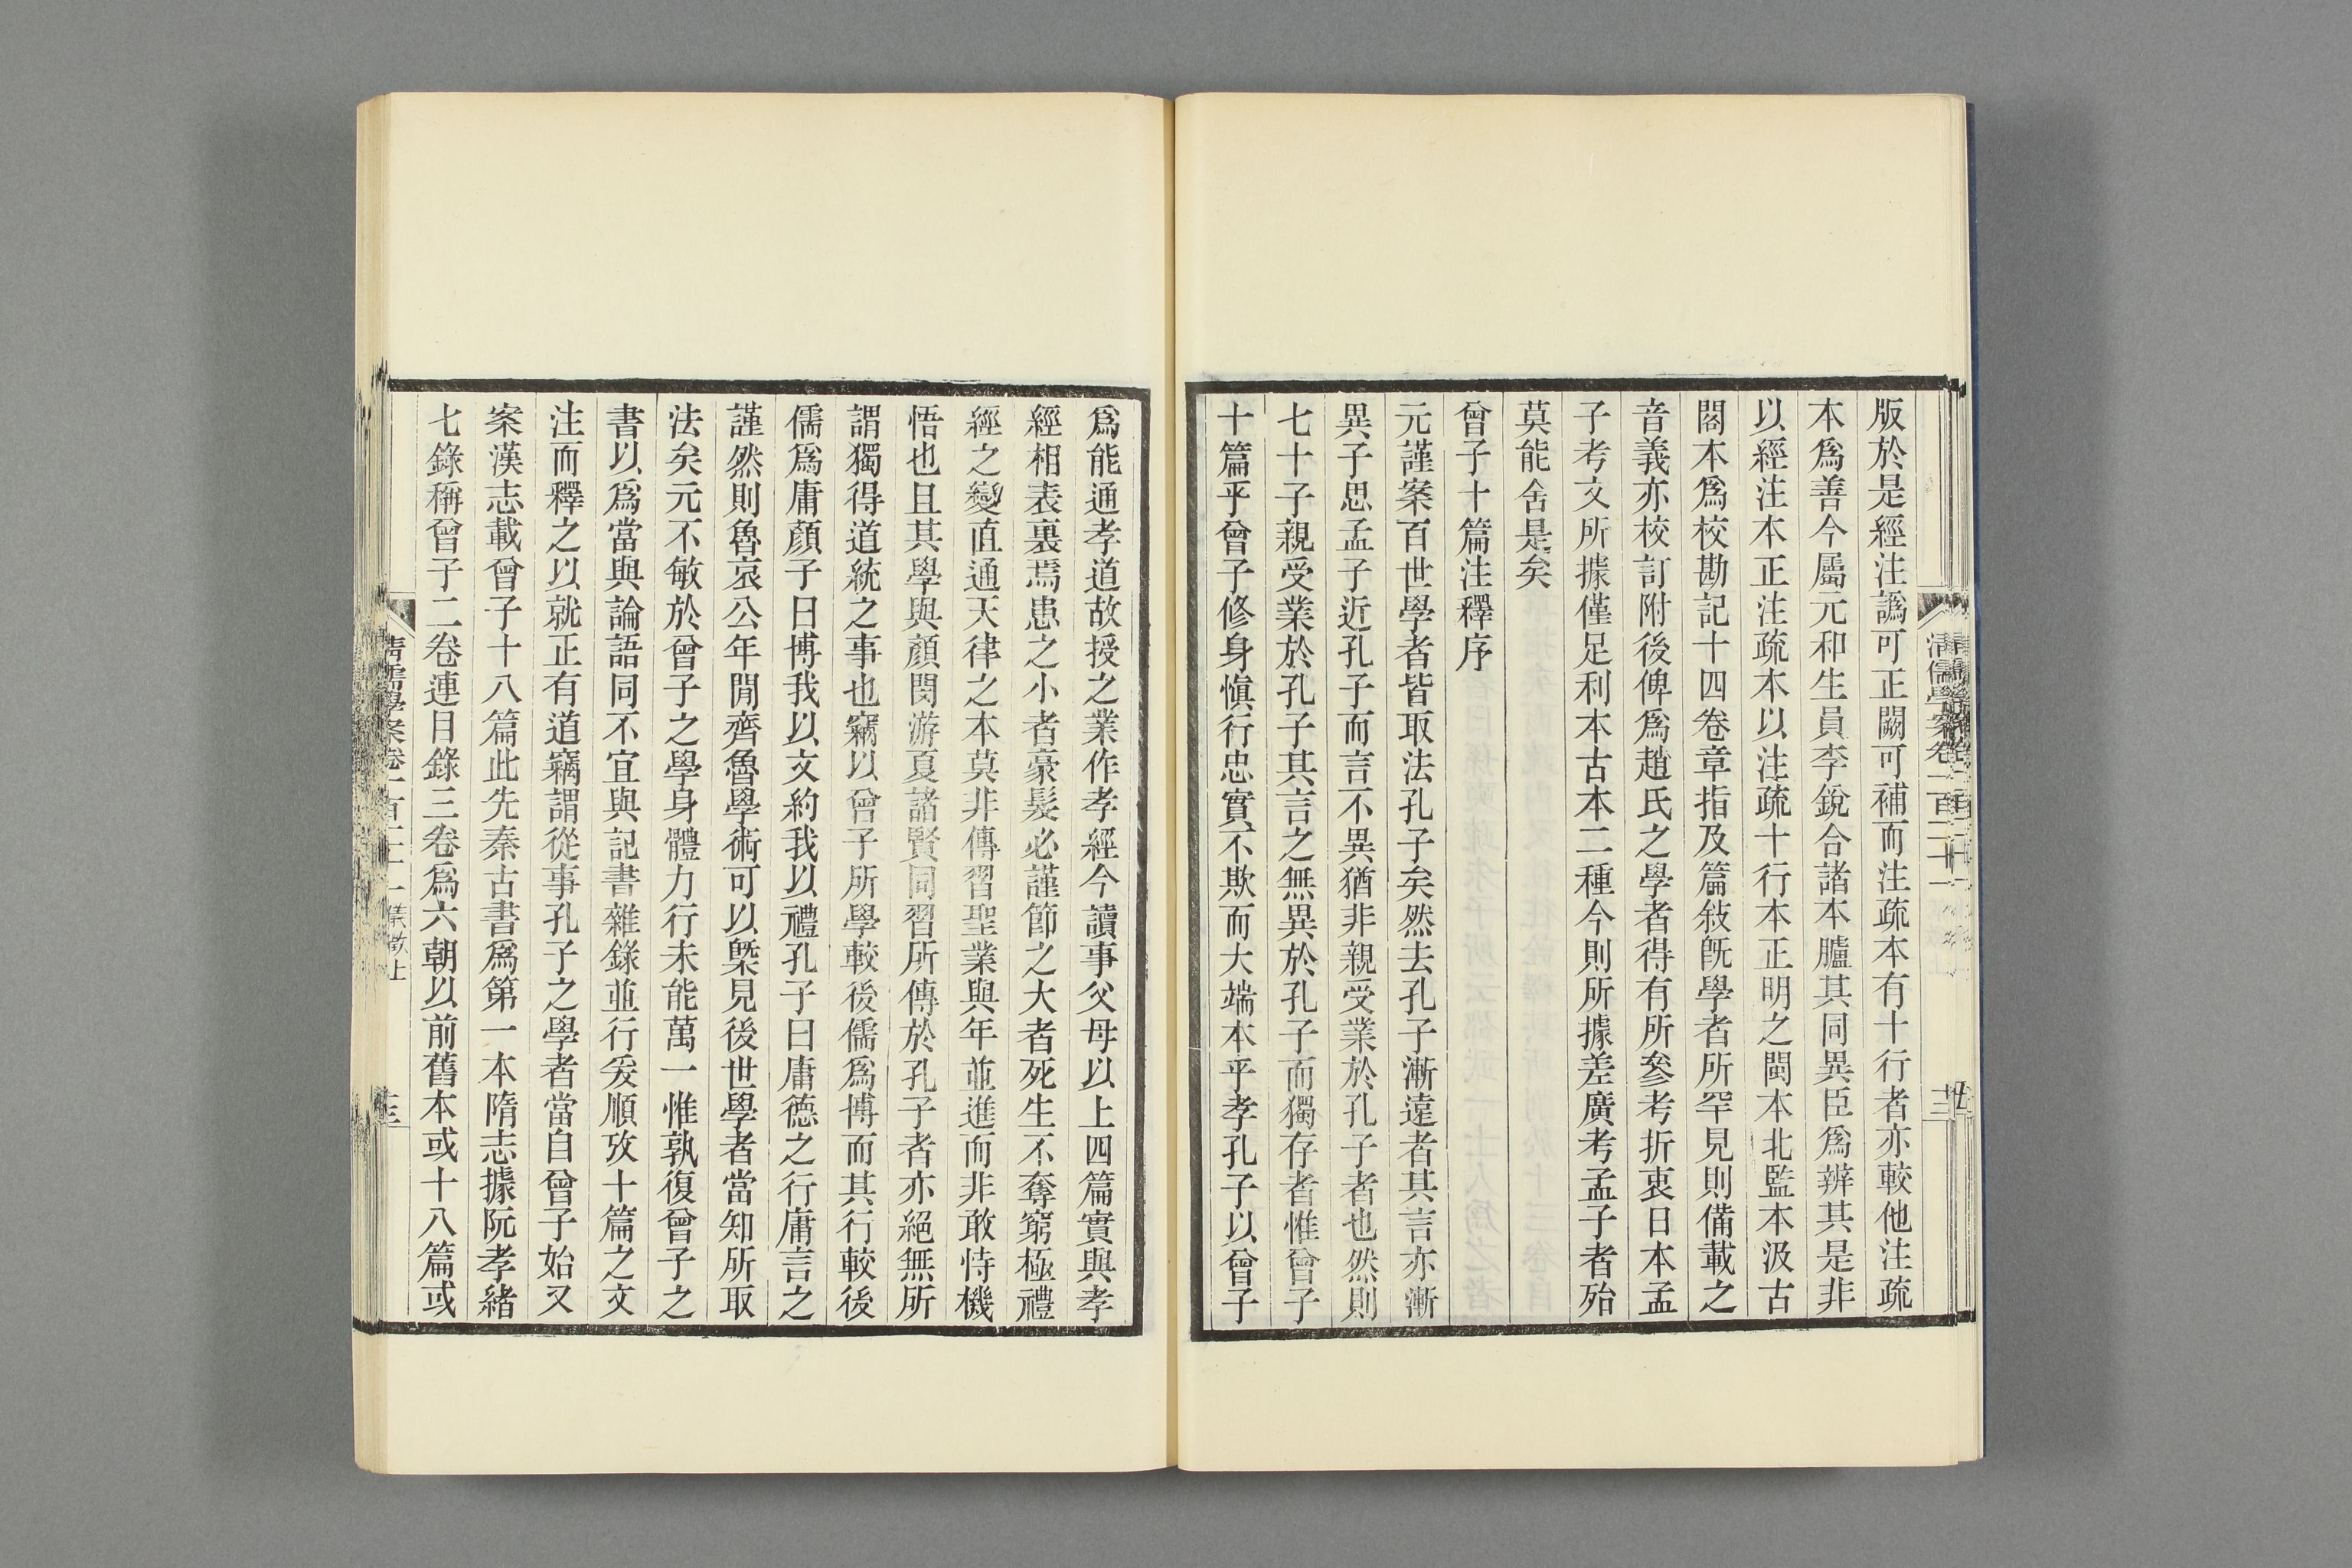 版於是經注譌可正闕可補而注疏本有十行者亦較他注疏
本爲善今屬元和生員李銳合諸本臚其同異臣爲辨其是非
以經注本正注疏本以注疏十行本正明之閩本北監本汲古
閣本爲校勘記十四卷章指及篇敍旣學者所罕見則備載之
音義亦校訂附後俾爲趙氏之學者得有所參考折衷日本孟
子考文所據僅足利本古本二種今則所據差廣考孟子者殆
莫能舍是矣
曾子十篇注釋序
元謹案百世學者皆取法孔子矣然去孔子漸遠者其言亦漸
異子思孟子近孔子而言不異猶非親受業於孔子者也然則
七十子親受業於孔子其言之無異於孔子而獨存者惟曾子
十篇乎曾子修身愼行忠實不欺而大端本乎孝孔子以曾子
爲能通孝道故授之業作孝經今讀事父母以上四篇實與孝
經相表裏焉患之小者豪髮必謹節之大者死生不奪窮極禮
經之變直通天律之本莫非傳習聖業與年並進而非敢恃機
悟也且其學與顏閔游夏諸賢同習所傳於孔子者亦絕無所
謂獨得道統之事也竊以曾子所學較後儒爲博而其行較後
儒爲庸顏子曰博我以文約我以禮孔子曰庸德之行庸言之
謹然則魯哀公年閒齊魯學術可以槩見後世學者當知所取
法矣元不敏於曾子之學身體力行未能萬一惟孰復曾子之
書以爲當與論語同不宜與記書雜錄並行爰順攷十篇之文
注而釋之以就正有道竊謂從事孔子之學者當自曾子始又
案漢志載曾子十八篇此先秦古書爲第一本隋志據阮孝緒
七錄稱曾子二卷連目錄三卷爲六朝以前舊本或十八篇或
清儒學案卷一百二十一